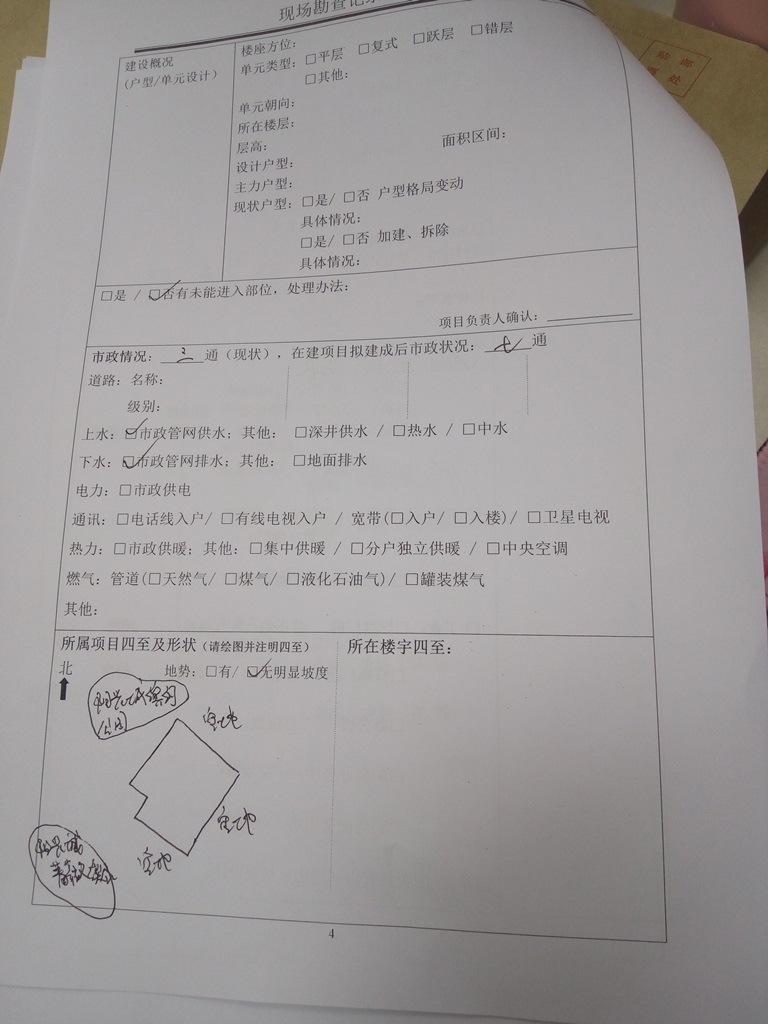 现场勘查记录
建设概况
(户型/单元设计)
楼座方位：
单元类型：□平层 □复式 □跃层 □错层
□其他：
单元朝向：
所在楼层：
层高： 面积区间：
设计户型：
主力户型：
现状户型：□是/ □否 户型格局变动
具体情况：
□是/ □否 加建、拆除
具体情况：
□是 / ☑否有未能进入部位，处理办法：
项目负责人确认：
市政情况：三通（现状），在建项目拟建成后市政状况：七通
道路：名称：
级别：
上水：☑市政管网供水；其他： □深井供水 / □热水 / □中水
下水：☑市政管网排水；其他： □地面排水
电力：□市政供电
通讯：□电话线入户/ □有线电视入户 / 宽带(□入户/ □入楼)/ □卫星电视
热力：□市政供暖；其他：□集中供暖 / □分户独立供暖 / □中央空调
燃气：管道(□天然气/ □煤气/ □液化石油气)/ □罐装煤气
其他：
所属项目四至及形状（请绘图并注明四至）
所在楼宇四至：
北
地势：□有/ ☑无明显坡度
公园
空地
空地
空地
4